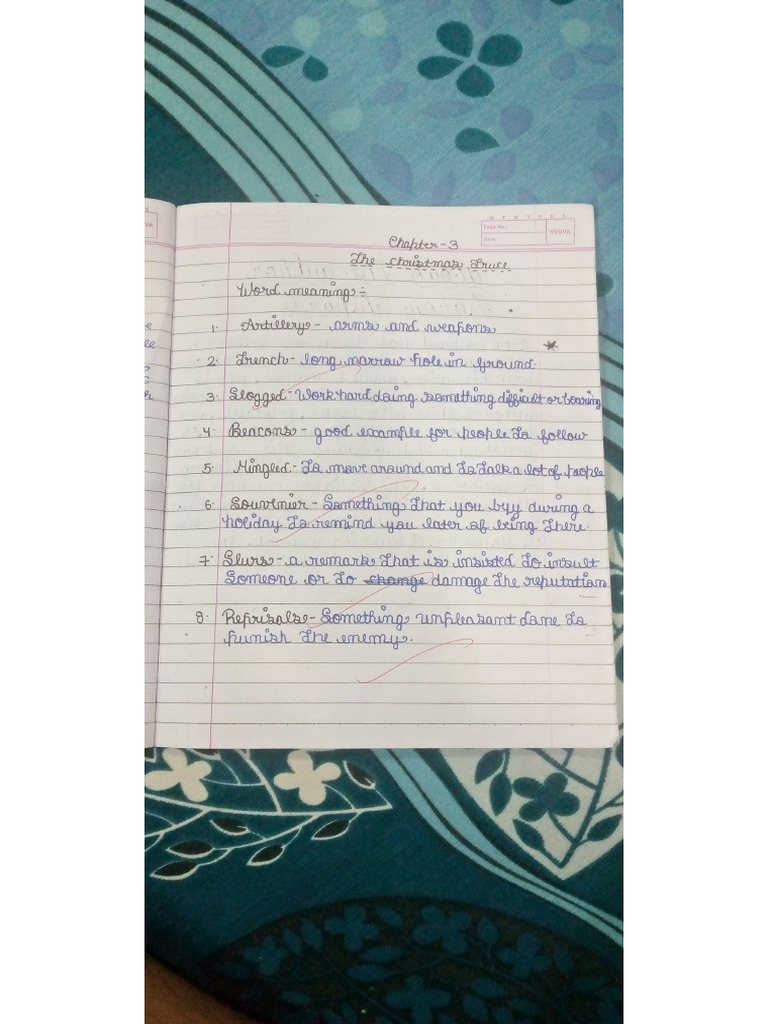 YOUVA
Page No.:
Date:
Chapter-3
The Christmas Truce
Word meaning :-
1. Artillery - arms and weapons
2. Trench - long narrow hole in ground.
3. Slogged - Work hard doing something difficult or boaring
4. Beacons - good example for people to follow
5. Mingled - To move around and to talk a lot of people
6. Souvnier - Something that you buy during a
holiday to remind you later of being there.
7. Slurs - a remark that is insisted to insult
Someone or to change damage the reputation
8. Reprisals - Something unpleasant done to
punish the enemy.